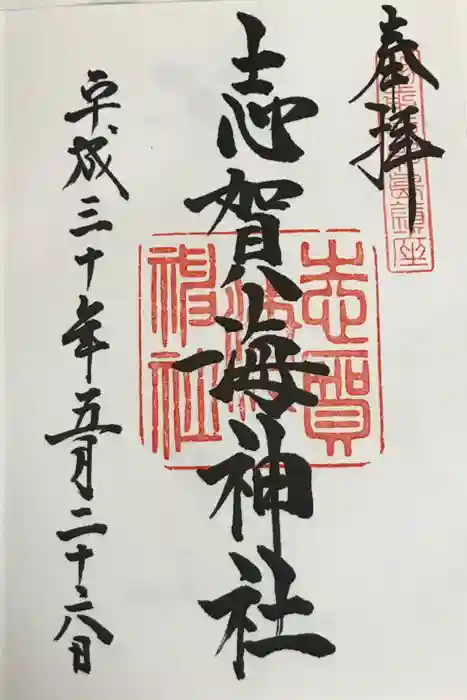 奉拝
志賀海神社
平成三十年五月二十六日
志賀海神社